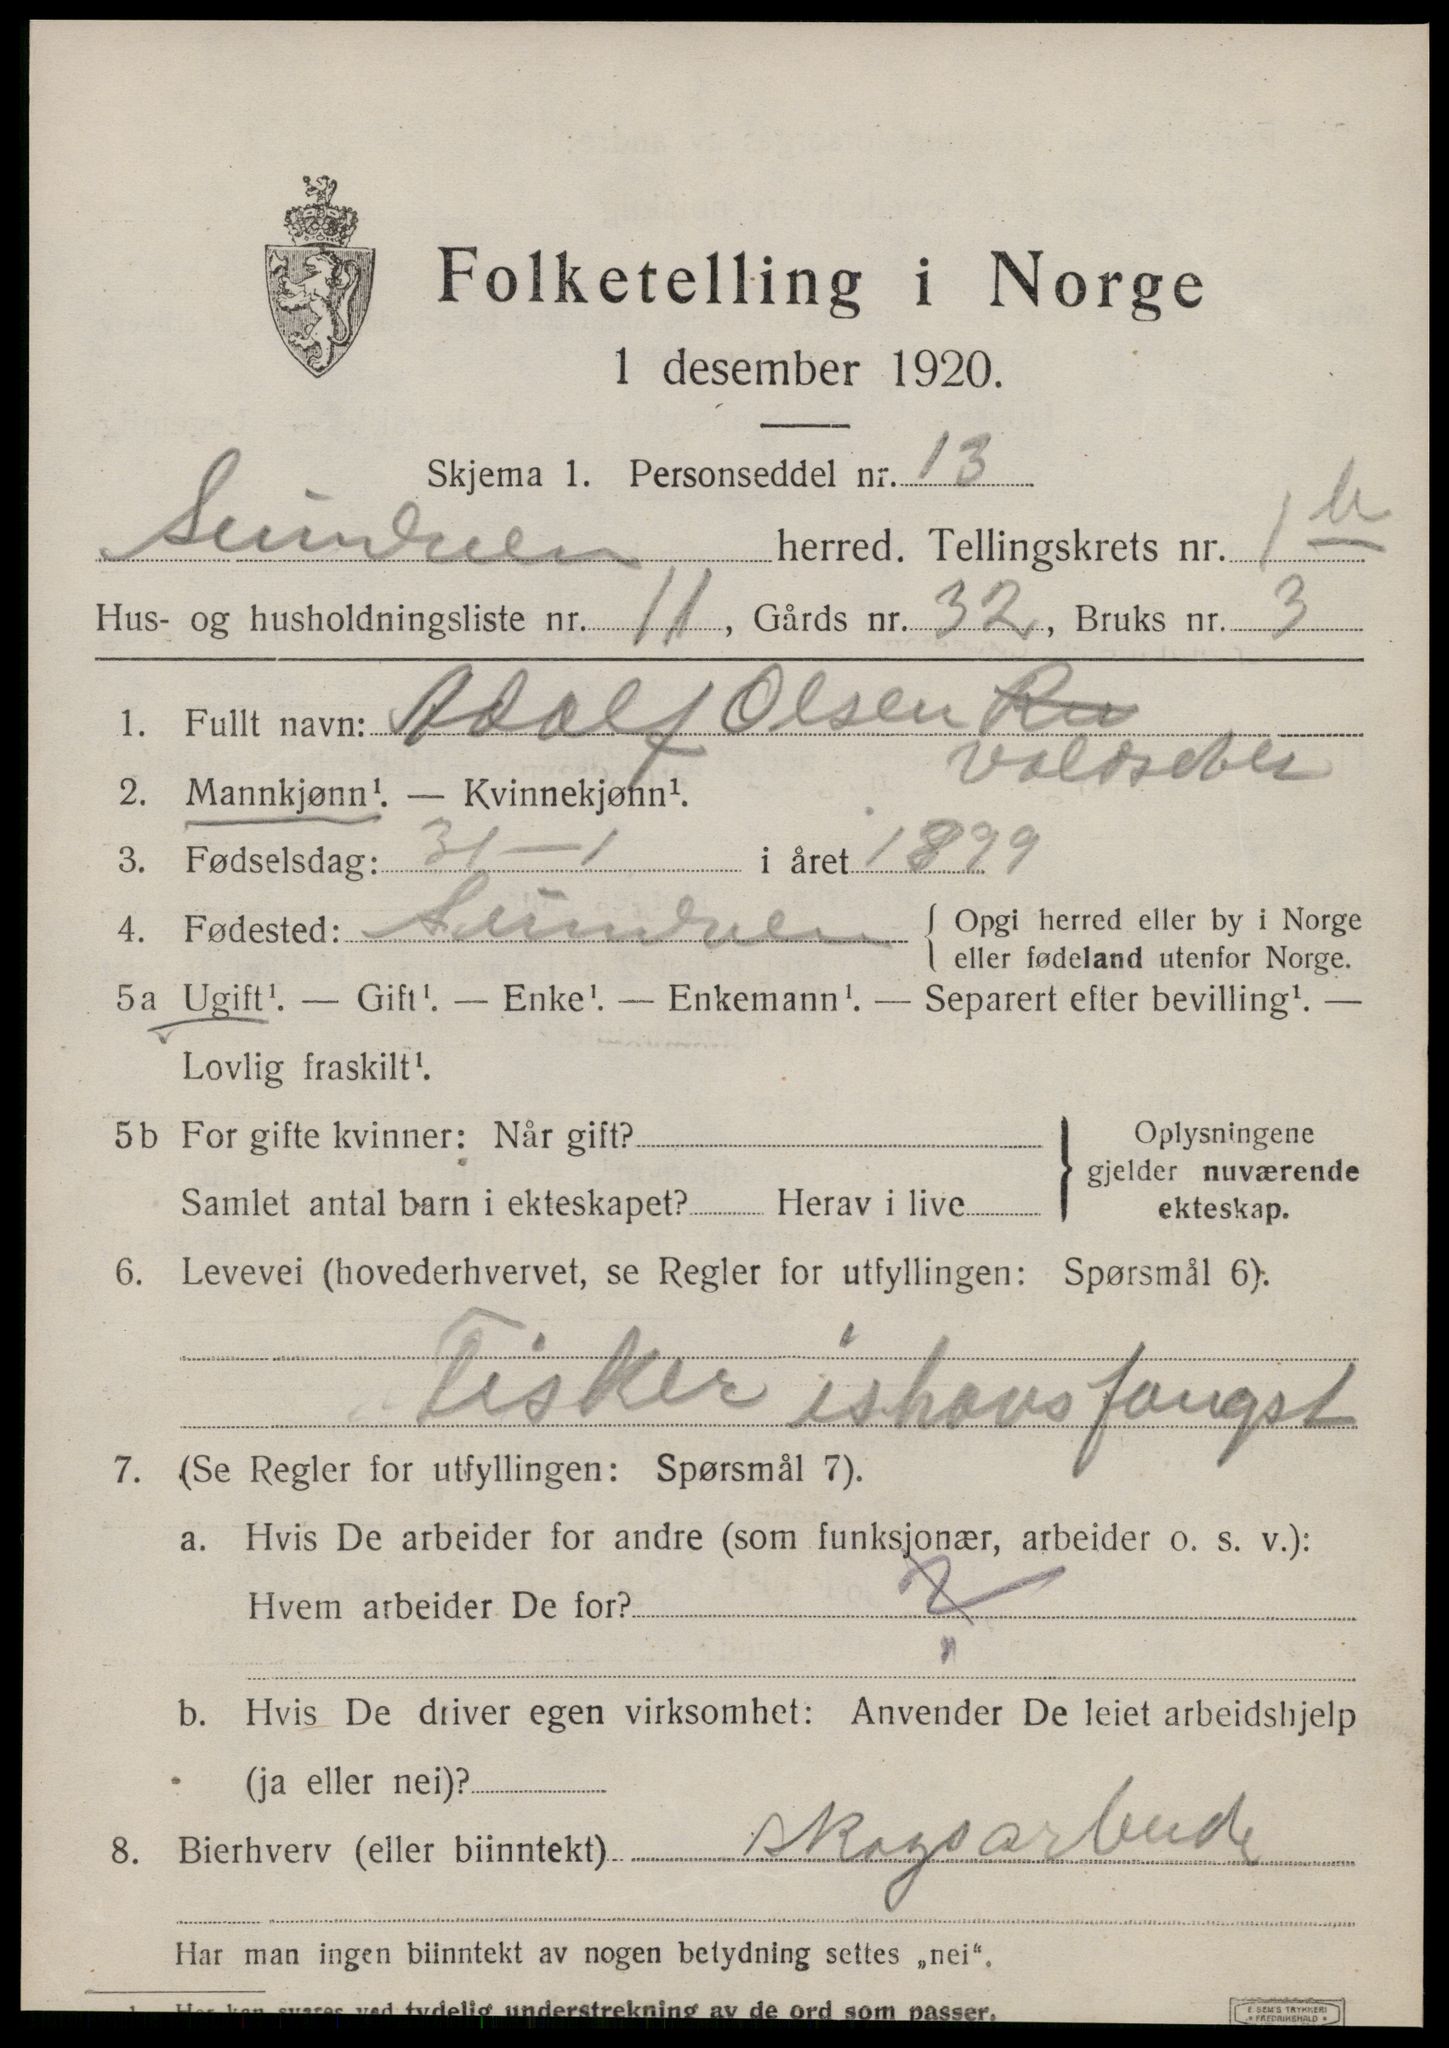 Folketelling i Norge
1 desember 1920.
Skjema 1. Personseddel nr. 13
herred. Tellingskrets nr. 1 b
Hus- og husholdningsliste nr. 11, Gårds nr. 32, Bruks nr. 3
1. Fullt navn: Adolf Olsen
2. Mannkjønn¹. — Kvinnekjønn¹.
3. Fødselsdag: 31-1 i året 1899
4. Fødested: { Opgi herred eller by i Norge
eller fødeland utenfor Norge.
5a Ugift¹. — Gift¹. — Enke¹. — Enkemann¹. — Separert efter bevilling¹. —
Lovlig fraskilt¹.
5b For gifte kvinner: Når gift?
Samlet antal barn i ekteskapet? Herav i live
} Oplysningene
gjelder nuværende
ekteskap.
6. Levevei (hovederhvervet, se Regler for utfyllingen: Spørsmål 6).
Fisker ishavsfangst
7. (Se Regler for utfyllingen: Spørsmål 7).
a. Hvis De arbeider for andre (som funksjonær, arbeider o. s. v.):
Hvem arbeider De for?
b. Hvis De driver egen virksomhet: Anvender De leiet arbeidshjelp
(ja eller nei)?
8. Bierhverv (eller biinntekt) skogsarbeide
Har man ingen biinntekt av nogen betydning settes „nei“.
¹. Her kan svares ved tydelig understrekning av de ord som passer.
E. SEM'S TRYKKERI
* FREDRIKSHALD *